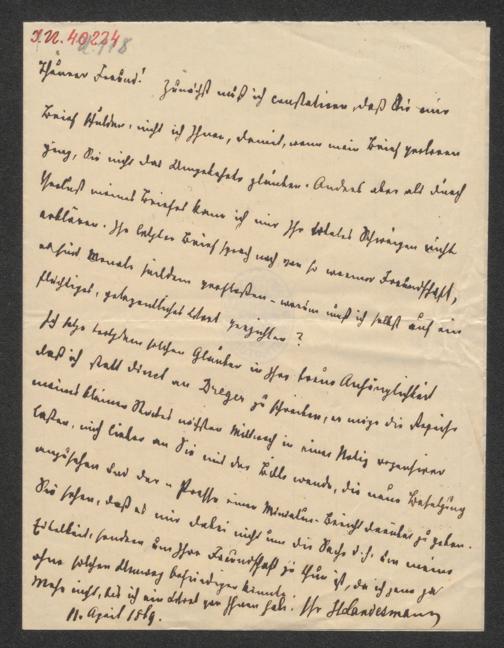 I.N. 40224
Theurer Freund! Zunächst muß ich constatiren, daß Sie mir
Brief schulden, nicht ich Ihnen, damit, wenn mein Brief verloren
ging, Sie nicht das Umgekehrte glauben. Anders aber als durch
Verlust meines Briefes kann ich mir Ihr totales Schweigen nicht
erklären. Ihr letzter Brief sprach noch von so warmer Freundschaft,
Monate seitdem verflossen – warum muß ich selbst auf ein
flüchtiges, gelegentliches Wort verzichten?
Ich setze trotzdem solchen Glauben in Ihre treue Anhänglichkeit
daß ich statt direct an Dreger zu schreiben, er möge die Reprise
meines kleinen Stückes nächsten Mittwoch in einer Notiz
lassen, mich lieber an Sie mit der Bitte wende, die neue Besetzung
anzusehen und der "Presse" einen Miniatur-Bericht darüber zu geben.
Sie sehen, daß es mir dabei nicht um die Sache d. h. um meine
Eitelkeit, sondern um Ihre Freundschaft zu thun ist, da ich jene ja
ohne solchen Umweg befriedigen könnte.
Mehr nicht, bis ich ein Wort von Ihnen habe. Ihr HLandesmann
11. April 1869.